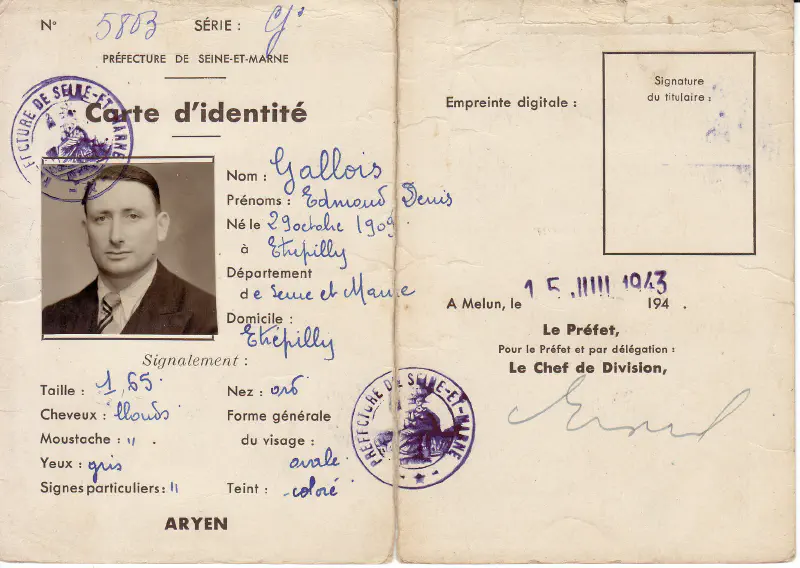 N° 5803 SÉRIE :
PRÉFECTURE DE SEINE-ET-MARNE
Carte d'identité
PRÉFECTURE DE SEINE-ET-MARNE
Nom : Gallois
Prénoms : Edmond Denis
Né le 29 octobre 1909
à Etrépilly
Département
de Seine et Marne
Domicile :
Etrépilly
Signalement :
Taille : 1,65
Cheveux : blonds
Moustache : " .
Yeux : gris
Signes particuliers : "
Nez :
Forme générale
du visage :
ovale
Teint : coloré
ARYEN
Empreinte digitale :
Signature
du titulaire :
A Melun, le 15 JUIL 1943
194 .
Le Préfet,
Pour le Préfet et par délégation :
Le Chef de Division,
PRÉFECTURE DE SEINE-ET-MARNE